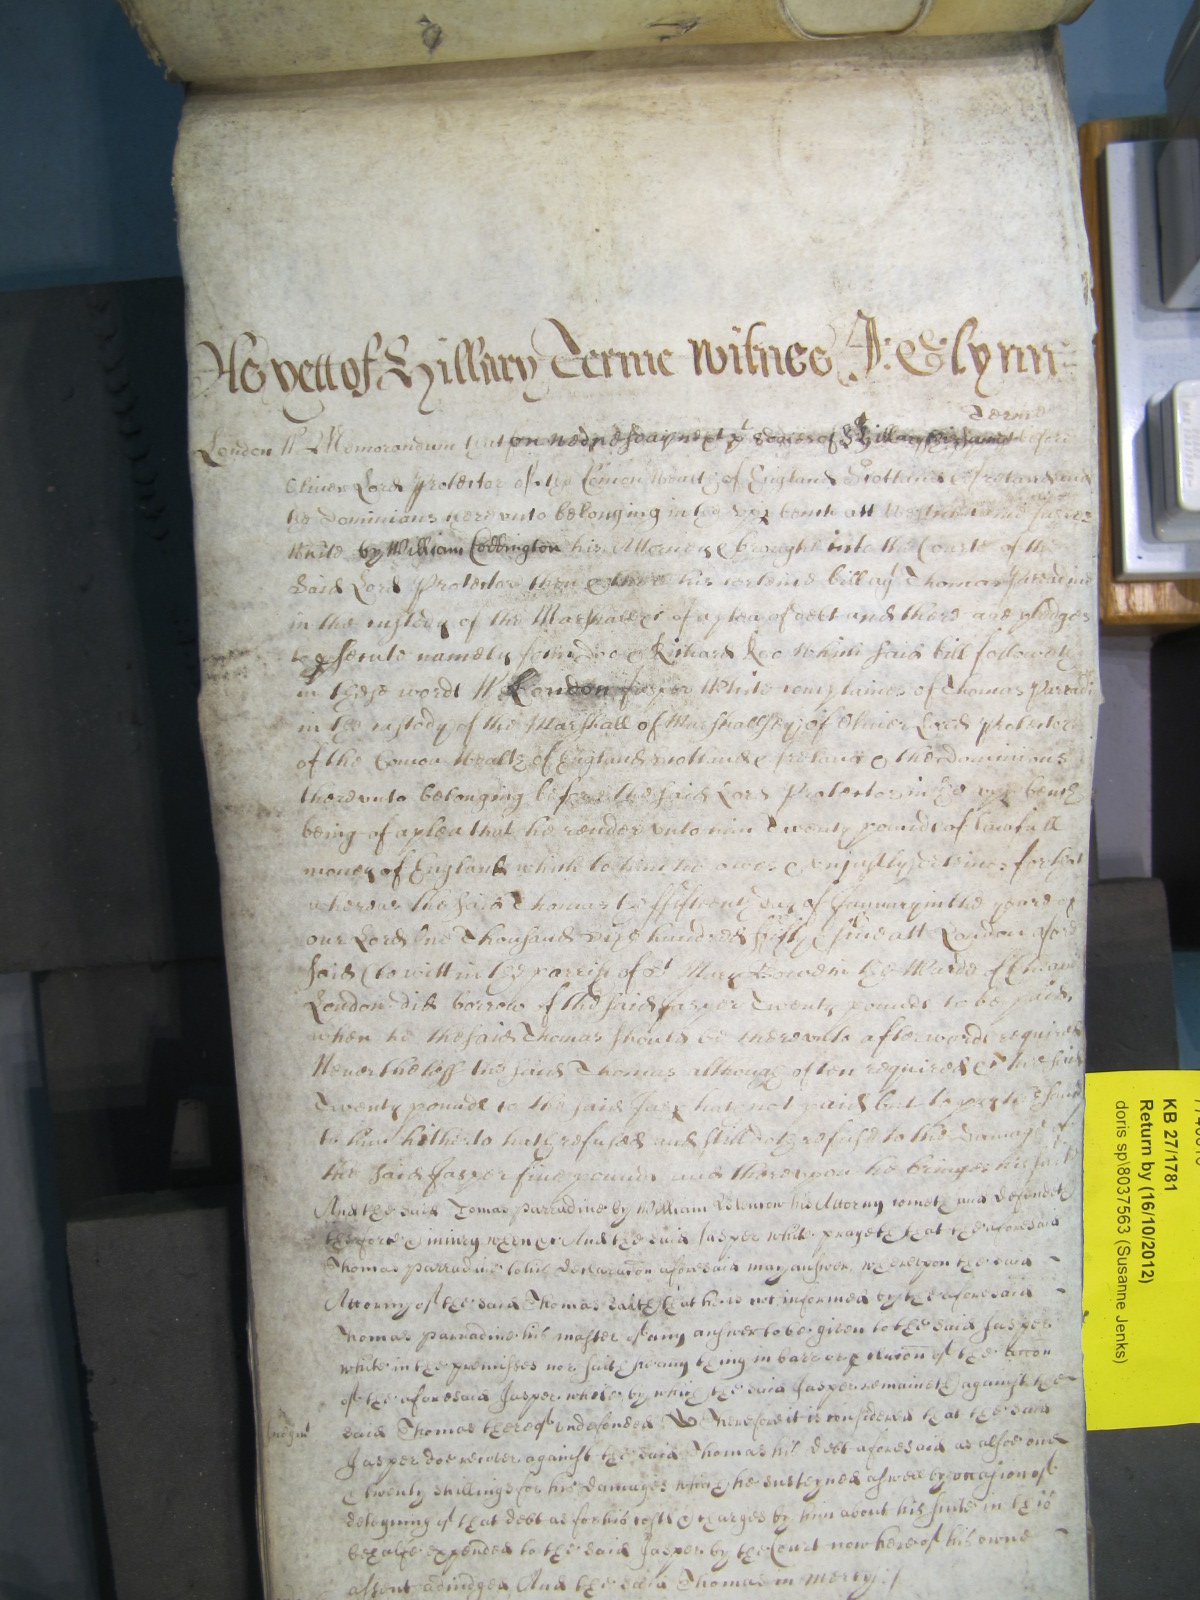 As yett of Hillary Terme Witnes J: Glynn
Terme
London ss Memorandum that on wednesday next p' Octaves of St Hillary this same before
Oliver Lord Protector of the Comon Wealth of England Scotland & Ireland and
the Dominions thereunto belonging in the upp bench att Westminster Jasper
White by William Coddington his Attorney & brought into the Courte of the
said Lord Protector then & there his certeine bill agt Thomas Parradine
in the custody of the Marshall &c of a plea of debt and there are pledges
to psecute namely John doe & Richard Roo which said bill followeth
in these words ss London Jasper White complaines of Thomas Parradi
in the custody of the Marshall of Marshallsey of Oliver Lord Protector
of the Comon Wealth of England Scotland & Ireland & the dominions
thereunto belonging before the said Lord Protector in the upp bench
being of a plea that he render unto him Twenty pounds of lawfull
money of England which to him he owes & unjustly deteines for that
whereas the said Thomas the fifteenth day of January in the yeare of
our Lord One Thousand sixe hundred fifty & five att London afore
said (to witt in the parrish of St Mary Bowe in the Warde of Cheape
London did borrow of the said Jasper Twenty pounds to be paid
when he the said Thomas should be thereunto afterwards required
Neverthelesse the said Thomas although often required &c the said
Twenty pounds to the said Jasp hath not paid but to pay the same
to him hitherto hath refused and still doth refuse to the Damage of
the said Jasper five pounds and thereupon he bringes his suite
And the said Tomas Parradine by William his Attorny cometh and defendeth
the force & iniury when &c And the said Jasper White prayeth that the aforesaid
Thomas Parradine to his declaracon aforesaid may answer whereupon the said
Attorny of the said Thomas saith that he is not informed by the aforesaid
Thomas Parradine his master of any answer to be given to the said Jasper
White in the premisses nor saith hee any thing in barr or preclusion of the accon
of the aforesaid Jasper White by which the said Jasper remaineth against the
Judgmt said Thomas thereof undefended Therefore it is considered that the said
Jasper doe recover against the said Thomas his debt aforesaid as alsoe one
& twenty shillings for his damages which he susteyned aswell by occasion of
deteyning of that debt as for his costs & charges by him about his suite in this
behalfe expended to the said Jasper by the Court now here of his owne
assent adiudged And the said Thomas in mercy &c
KB 27/1781
Return by (16/10/2012)
doris sp\8037563 (Susanne Jenks)